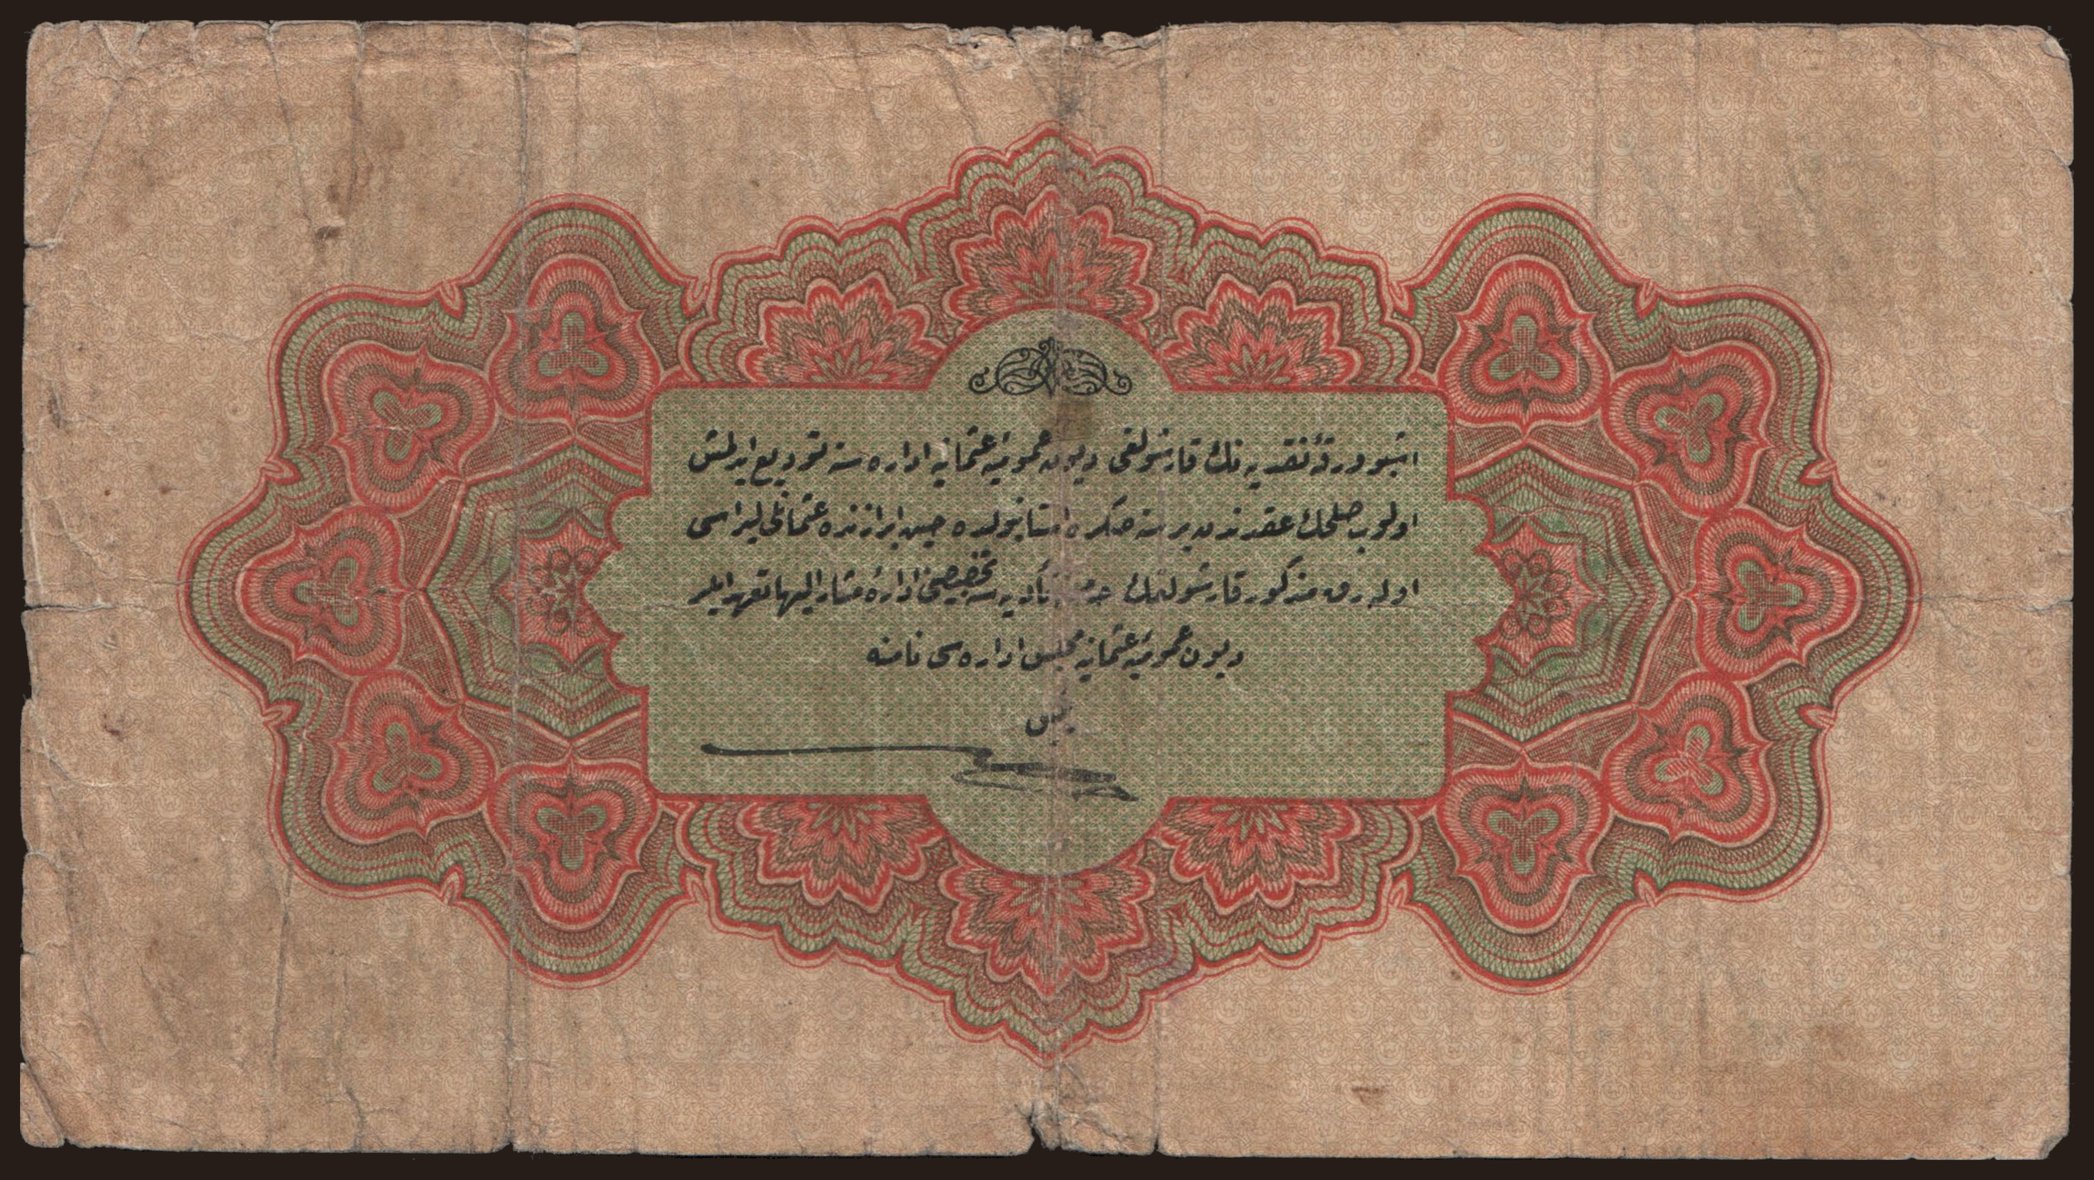 اشبو ورقهٔ نقدیه نك قارشولغی دیون عمومیهٔ عثمانیه اداره سنه تودیع ایدلمش
اولوب صلحك عقدندن بر سنه صكره استانبولده حین ابرازنده عثمانلی لیراسی
اوله رق مذكور قارشولغك تأدیه سنه تخصیصنی ادارهٔ مشار الیها تعهد ایلر
دیون عمومیهٔ عثمانیه مجلس اداره سی نامنه
رئیس